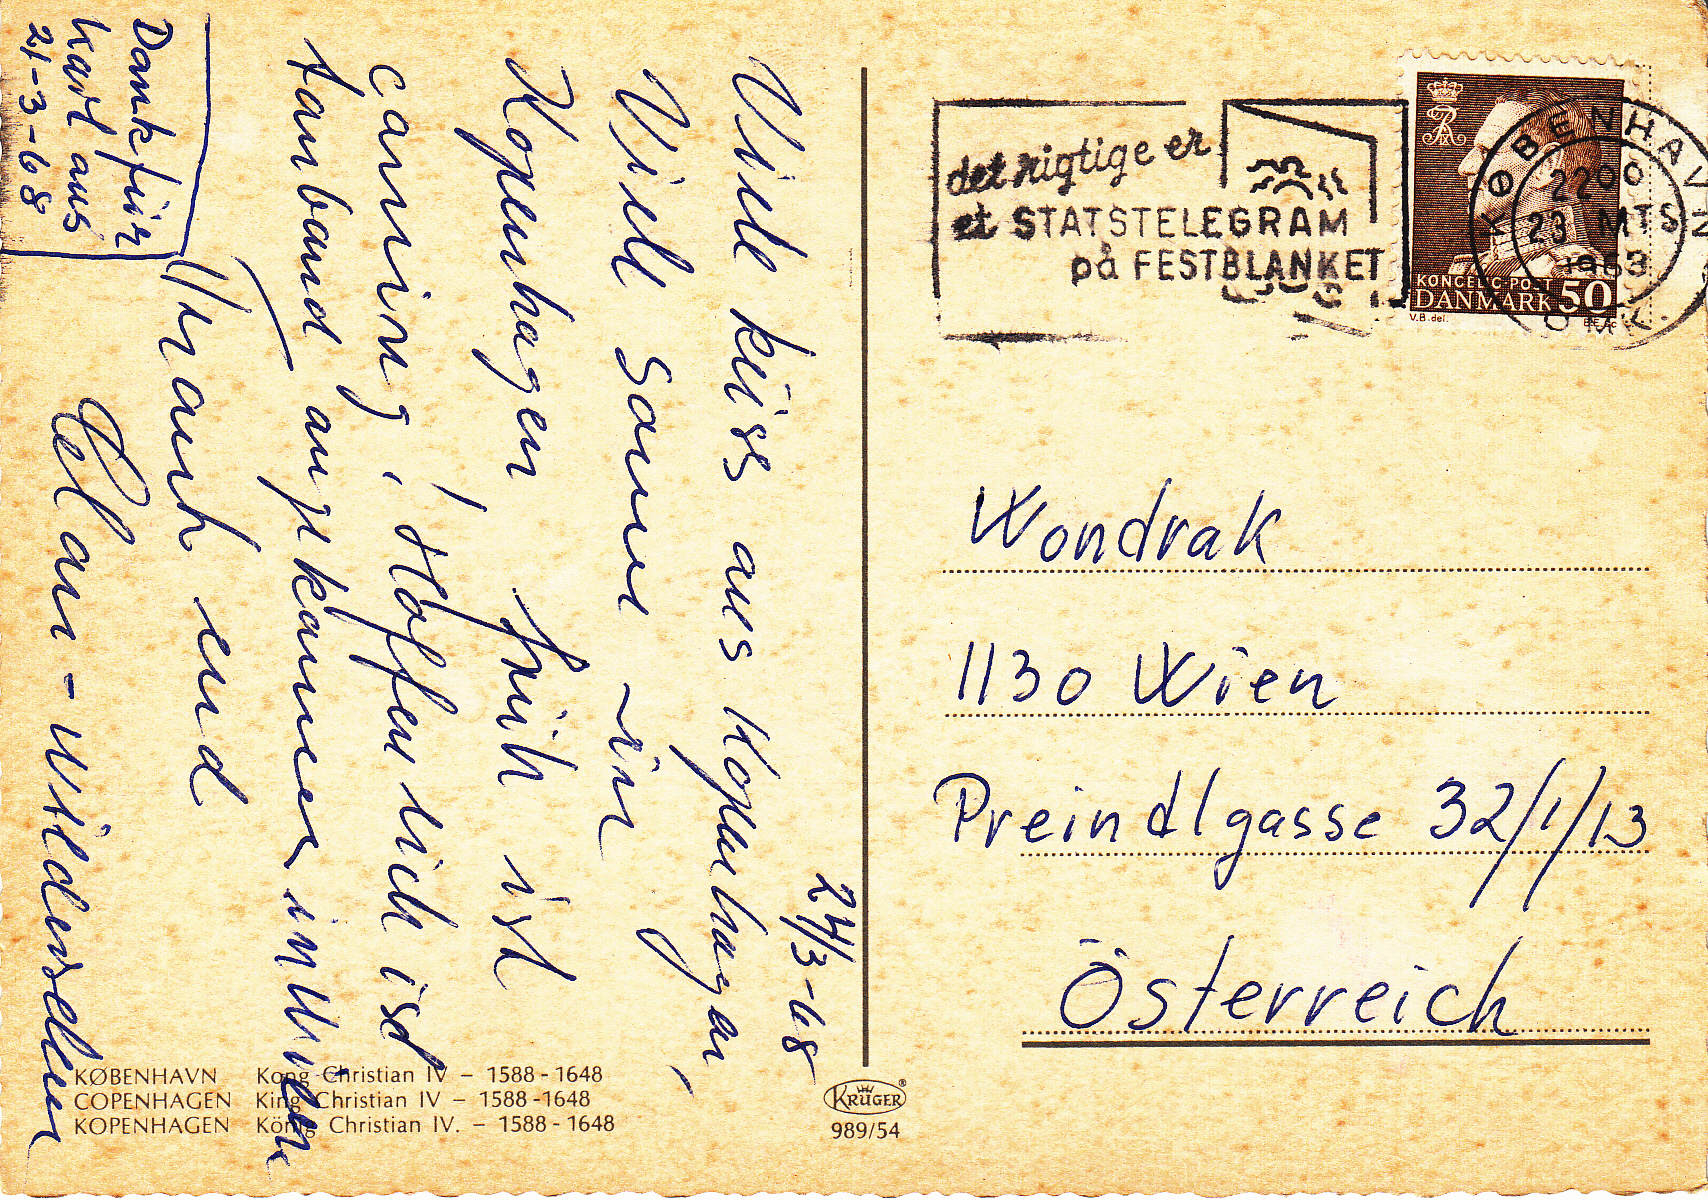 24/3-68
Viele küss aus Kopenhagen,
Viell Sonne in
Kopenhagen früh ist
carning, Hoffen lich ist
tonband angekommen in Wien
Urauh und
Dank für
Karl aus
21-3-68
det rigtige er
et STATSTELEGRAM
på FESTBLANKET
KØBENHAVN
2200
23 MTS
OMK.
KONGELIG POST
DANMARK 50
V.B. del.
Wondrak
1130 Wien
Preindlgasse 32/1/13
Österreich
KØBENHAVN Kong Christian IV – 1588 - 1648
COPENHAGEN King Christian IV – 1588 -1648
KOPENHAGEN König Christian IV. – 1588 - 1648
KRÜGER®
989/54